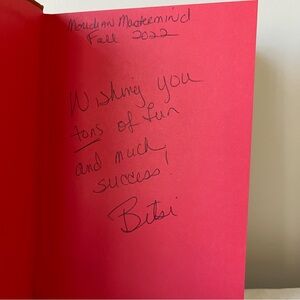 Meridian Mastermind
Fall 2022
Wishing you
tons of fun
and much
success!
Betsi